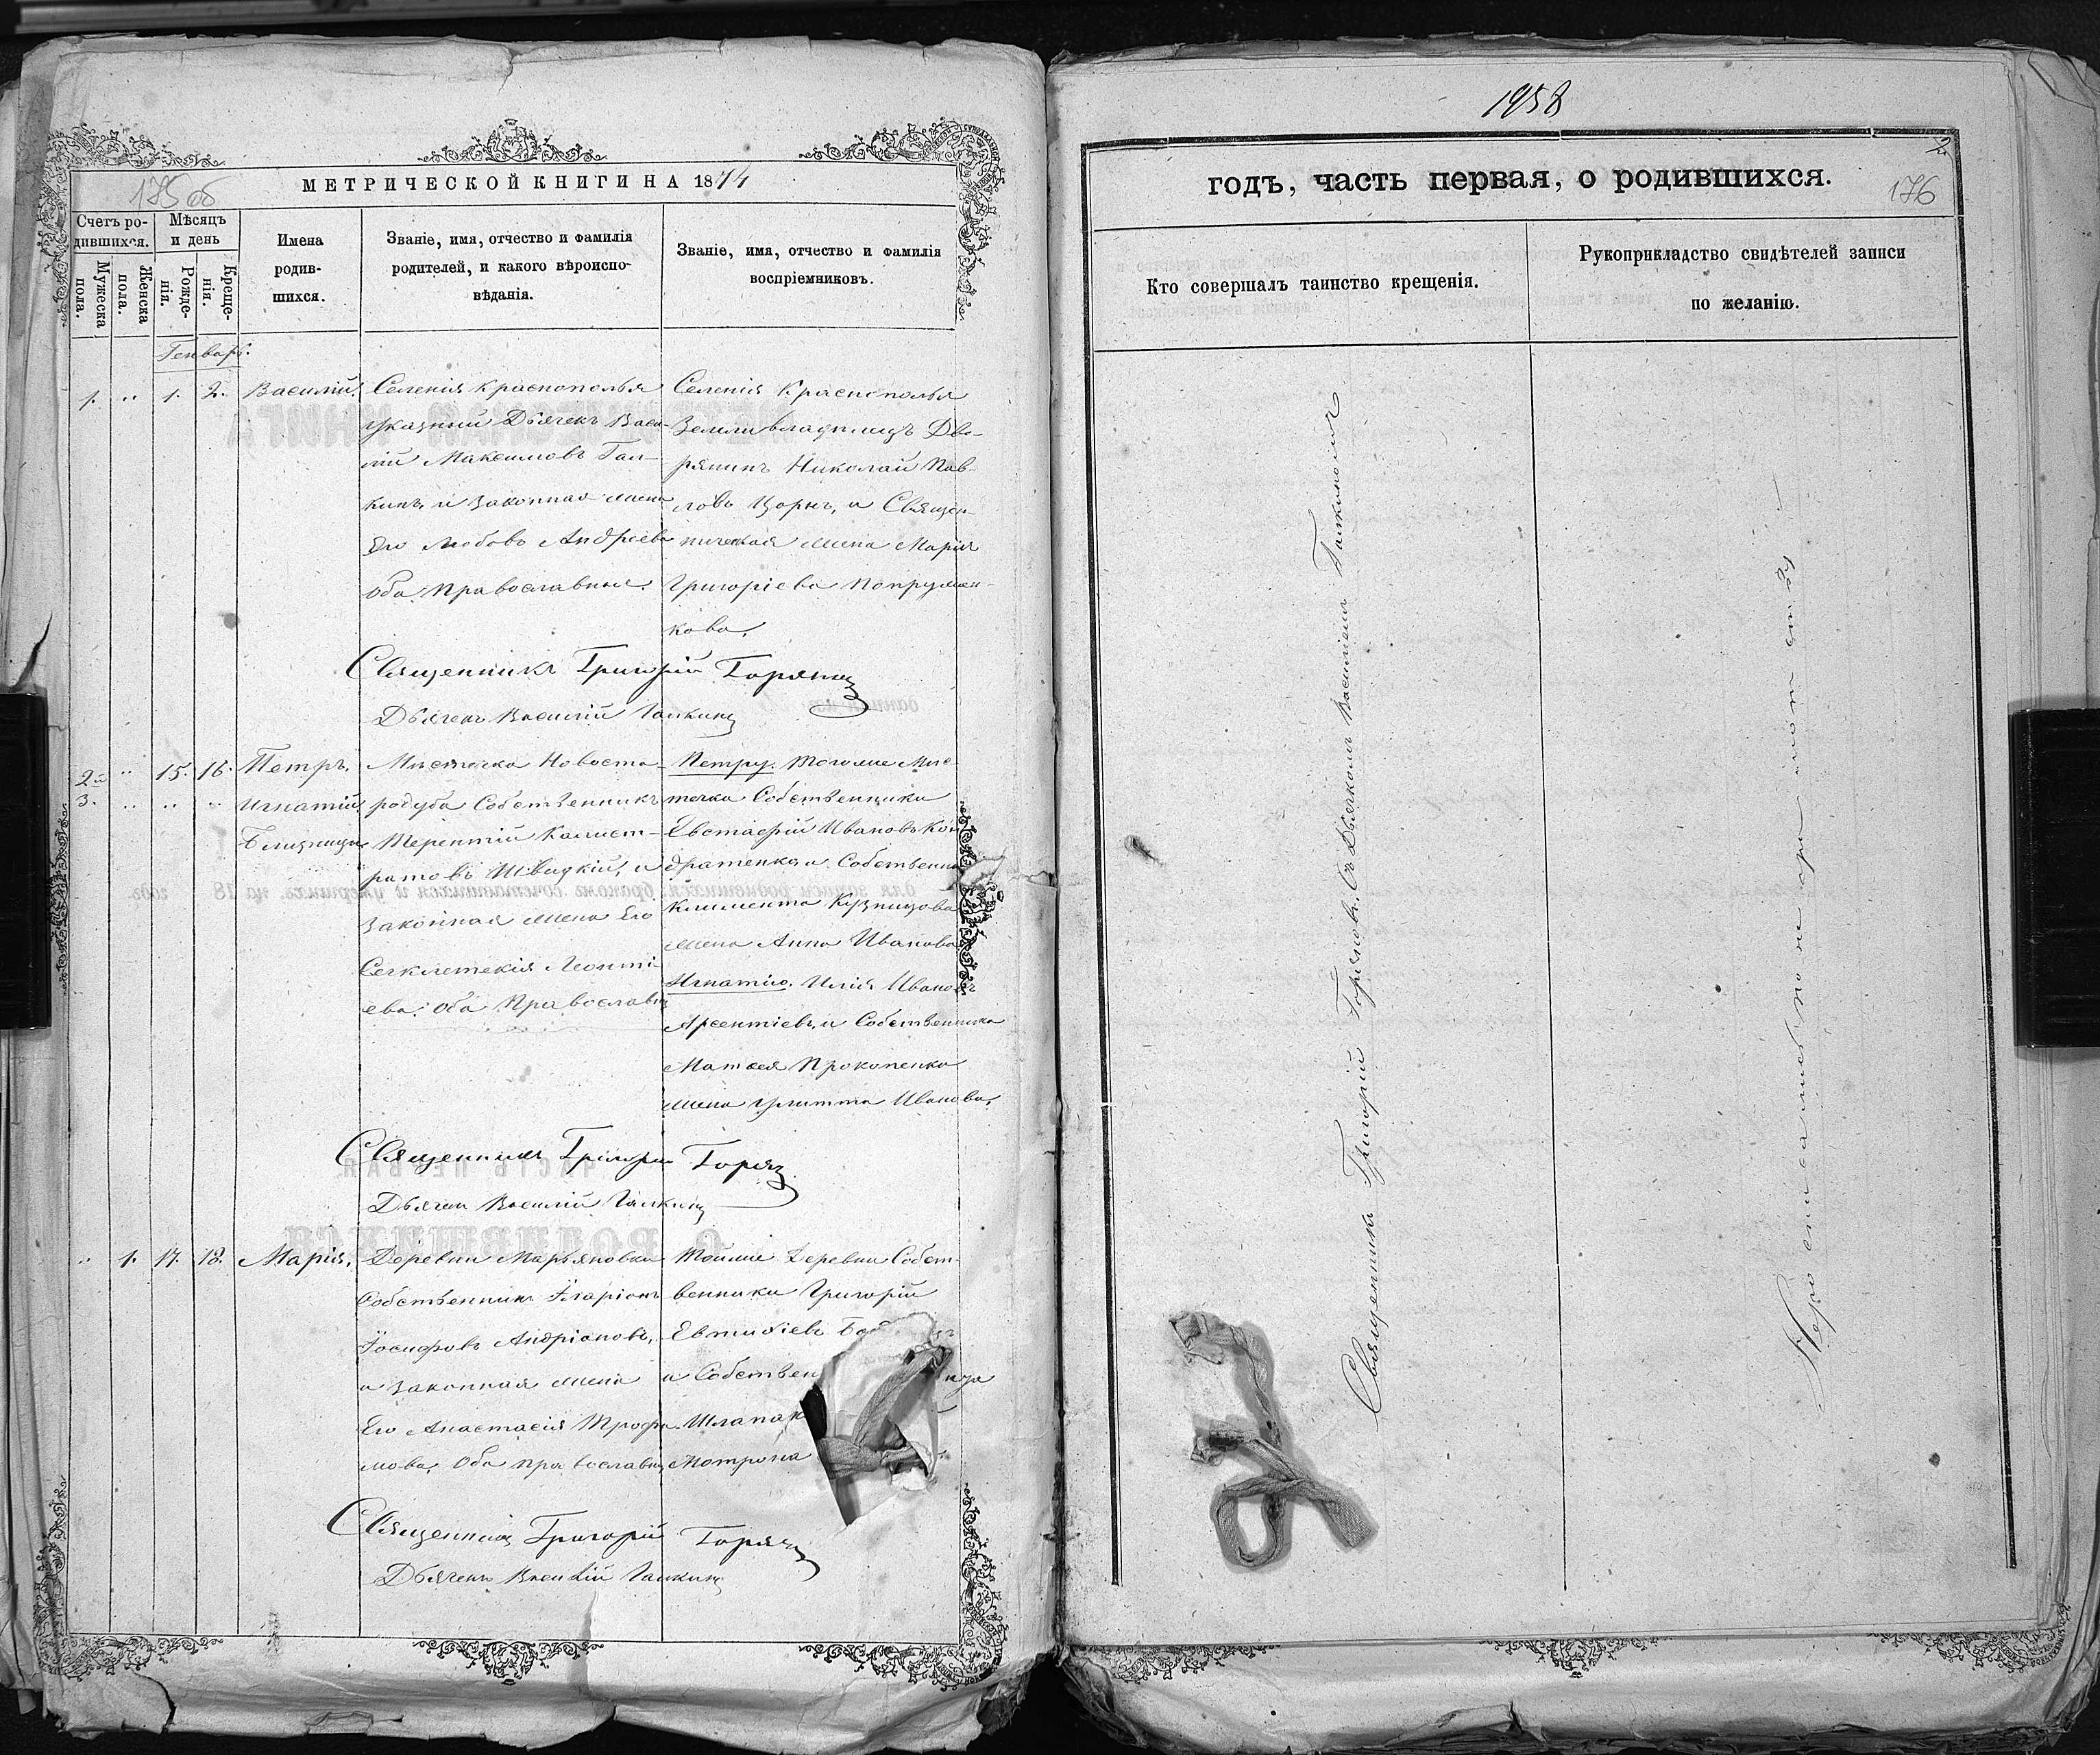 175 об
МЕТРИЧЕСКОЙ КНИГИ НА 1874
Счетъ ро-
дившихся.
Мѣсяцъ
и день
Мужеска
пола.
Женска
пола.
Рожде-
нія.
Креще-
нія.
Имена
родив-
шихся.
Званіе, имя, отчество и фамилія
родителей, и какого вѣроиспо-
вѣданія.
Званіе, имя, отчество и фамилія
воспріемниковъ.
Генварь.
1. " 1. 2. Василій.
Селенія Краснополья
указный Дьячекъ Васи-
лій Максимовъ Гал-
кинъ и законная жена
Его Любовь Андреева
оба Православные.
Селенія Краснополья
Землевладѣлецъ Дво-
рянинъ Николай Пав-
ловъ Цорнъ, и Священ-
ническая жена Марія
Григоріева Попружен-
кова.
Священникъ Григорій Горянъ
Дьячекъ Василій Галкинъ
2. " 15. 16. Петръ.
3. " " " Игнатій
Близнецы
Мѣстечка Новоста-
родуба Собственникъ
Терентій Калист-
ратовъ Швидкій, и
законная жена Его
Секлетекія Леонті-
ева. Оба Православн
Петру. Тогоже Мѣс
течка Собственники
Евстафій Ивановъ Кон
дратенко и Собственн
Климента Кузнецова
жена Анна Иванова
Игнатію. Илія Ивановъ
Арсентіевъ и Собственника
Матвея Прокопенко
жена Улитта Иванова.
Священникъ Григорій Горянъ
Дьячекъ Василій Галкинъ
" 1. 17. 18. Марія.
Деревни Марьяновки
Собственникъ Иларіонъ
Іосифовъ Андріановъ,
и законная жена
Его Анастасія Трофи
мова. Оба православн
Тойже Деревни Собст-
венники Григорій
Евтихіевъ
и Собствен
Шлапак
Мотрона
Священникъ Григорій Горянъ
Дьячекъ Василій Галкинъ
1958
годъ, часть первая, о родившихся.
176
Кто совершалъ таинство крещенія.
Рукоприкладство свидѣтелей записи
по желанію.
Священникъ Григорій Горяновъ, Съ Дьячкомъ Василіемъ Галкинымъ